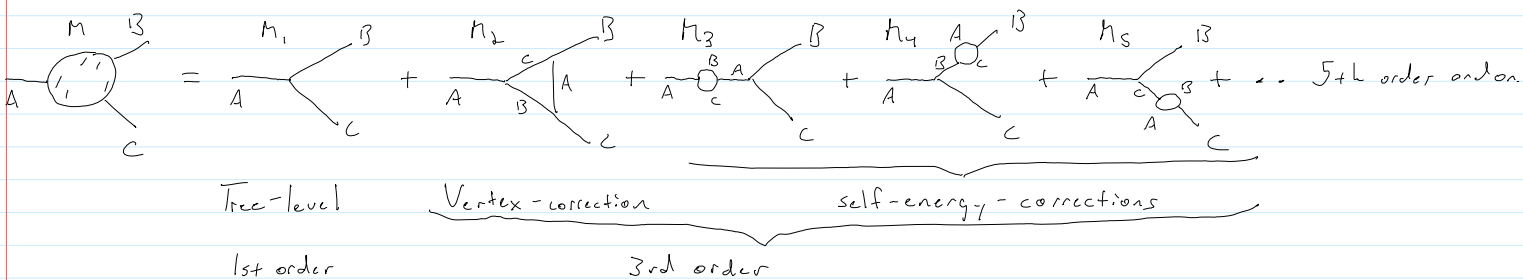 M B M₁ B M₂ B M₃ B M₄ A B M₅ B
A C = A C + A C B A C + A B C A C + A B C C + A C B A C + .. 5th order and on.
Tree-level Vertex-correction self-energy-corrections
1st order 3rd order